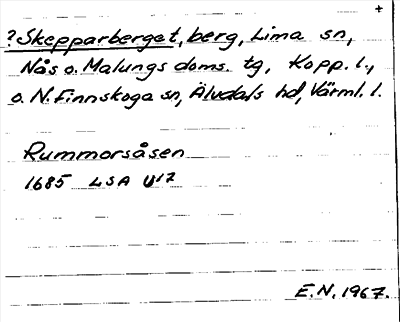 +
?Skepparberget, berg, Lima sn,
Nås o. Malungs doms. tg, Kopp. l.,
o. N. Finnskoga sn, Älvdals hd, Värml. l.
Rummorsåsen
1685 LSA U17
E.N. 1967.